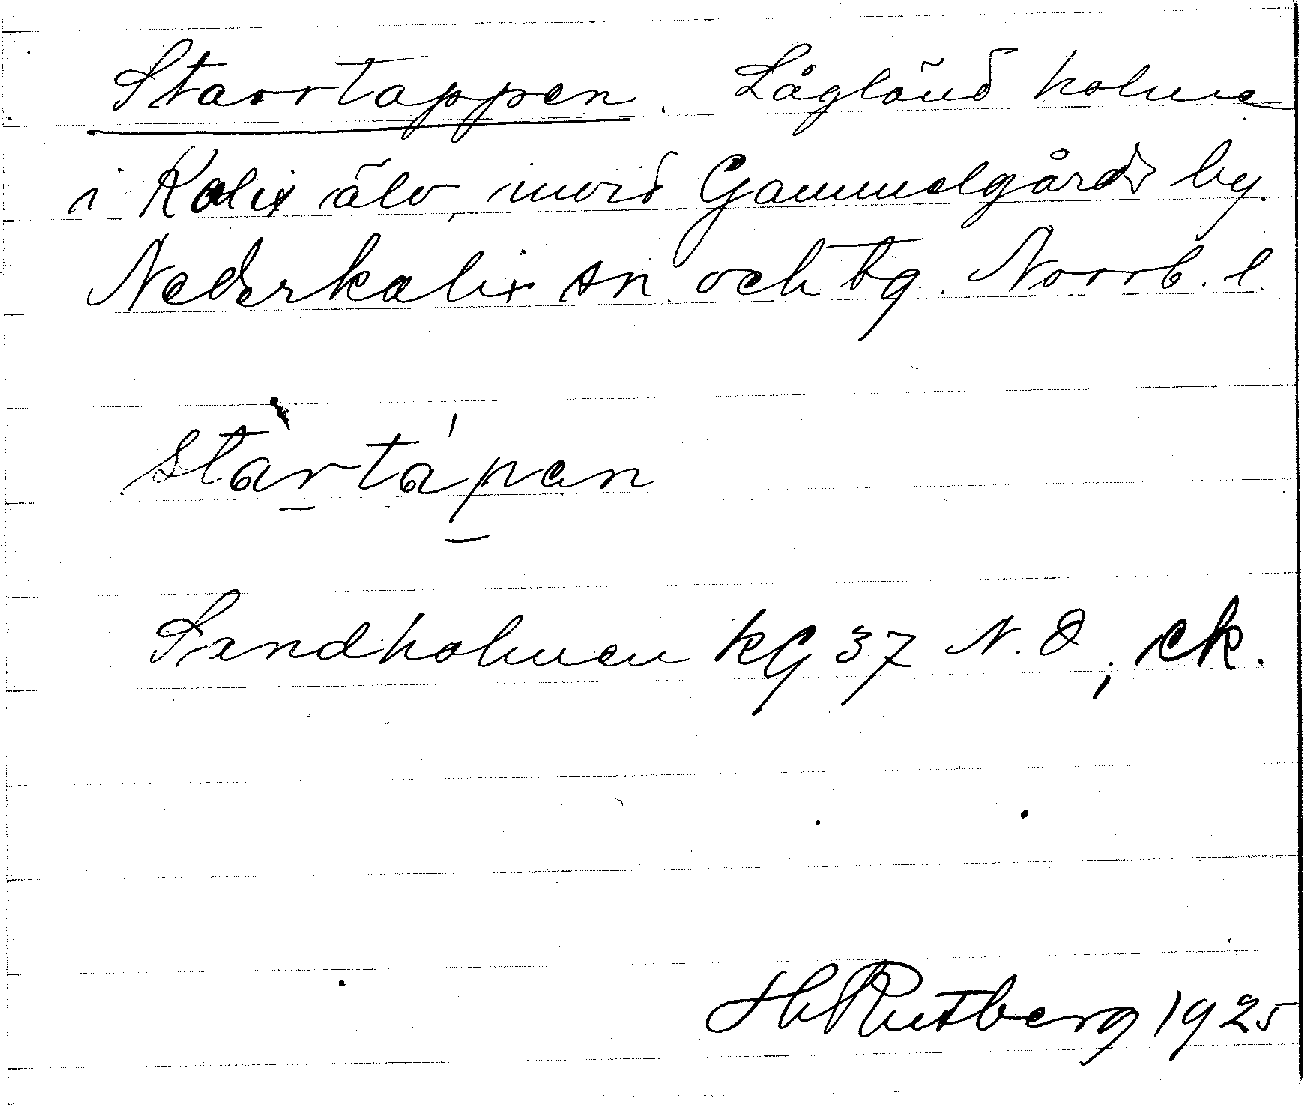 Starrtappen. Lågländ holme
i Kalix älv, invid Gammelgårds by.
Nederkalix sn. och tg. Norrb. l.
stàrtápen
Sandholmen kG 37 N.O, ek.
H Rutberg 1925